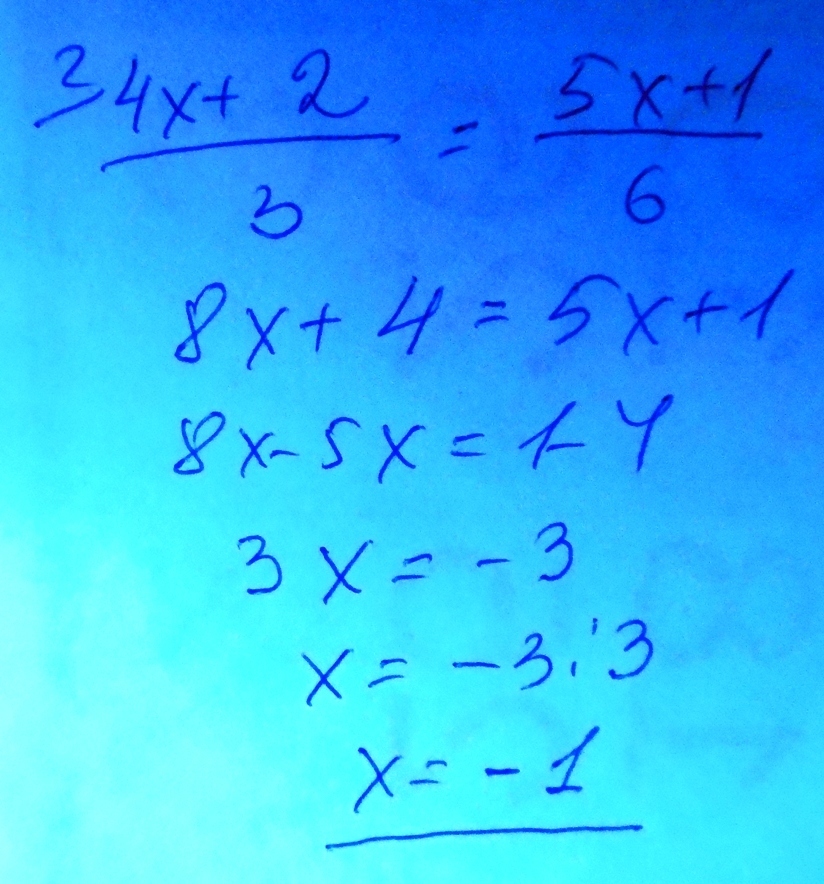 2⟋ 4x + 2 / 3 = 5x + 1 / 6
8x + 4 = 5x + 1
8x - 5x = 1 - 4
3x = -3
x = -3 : 3
x = -1